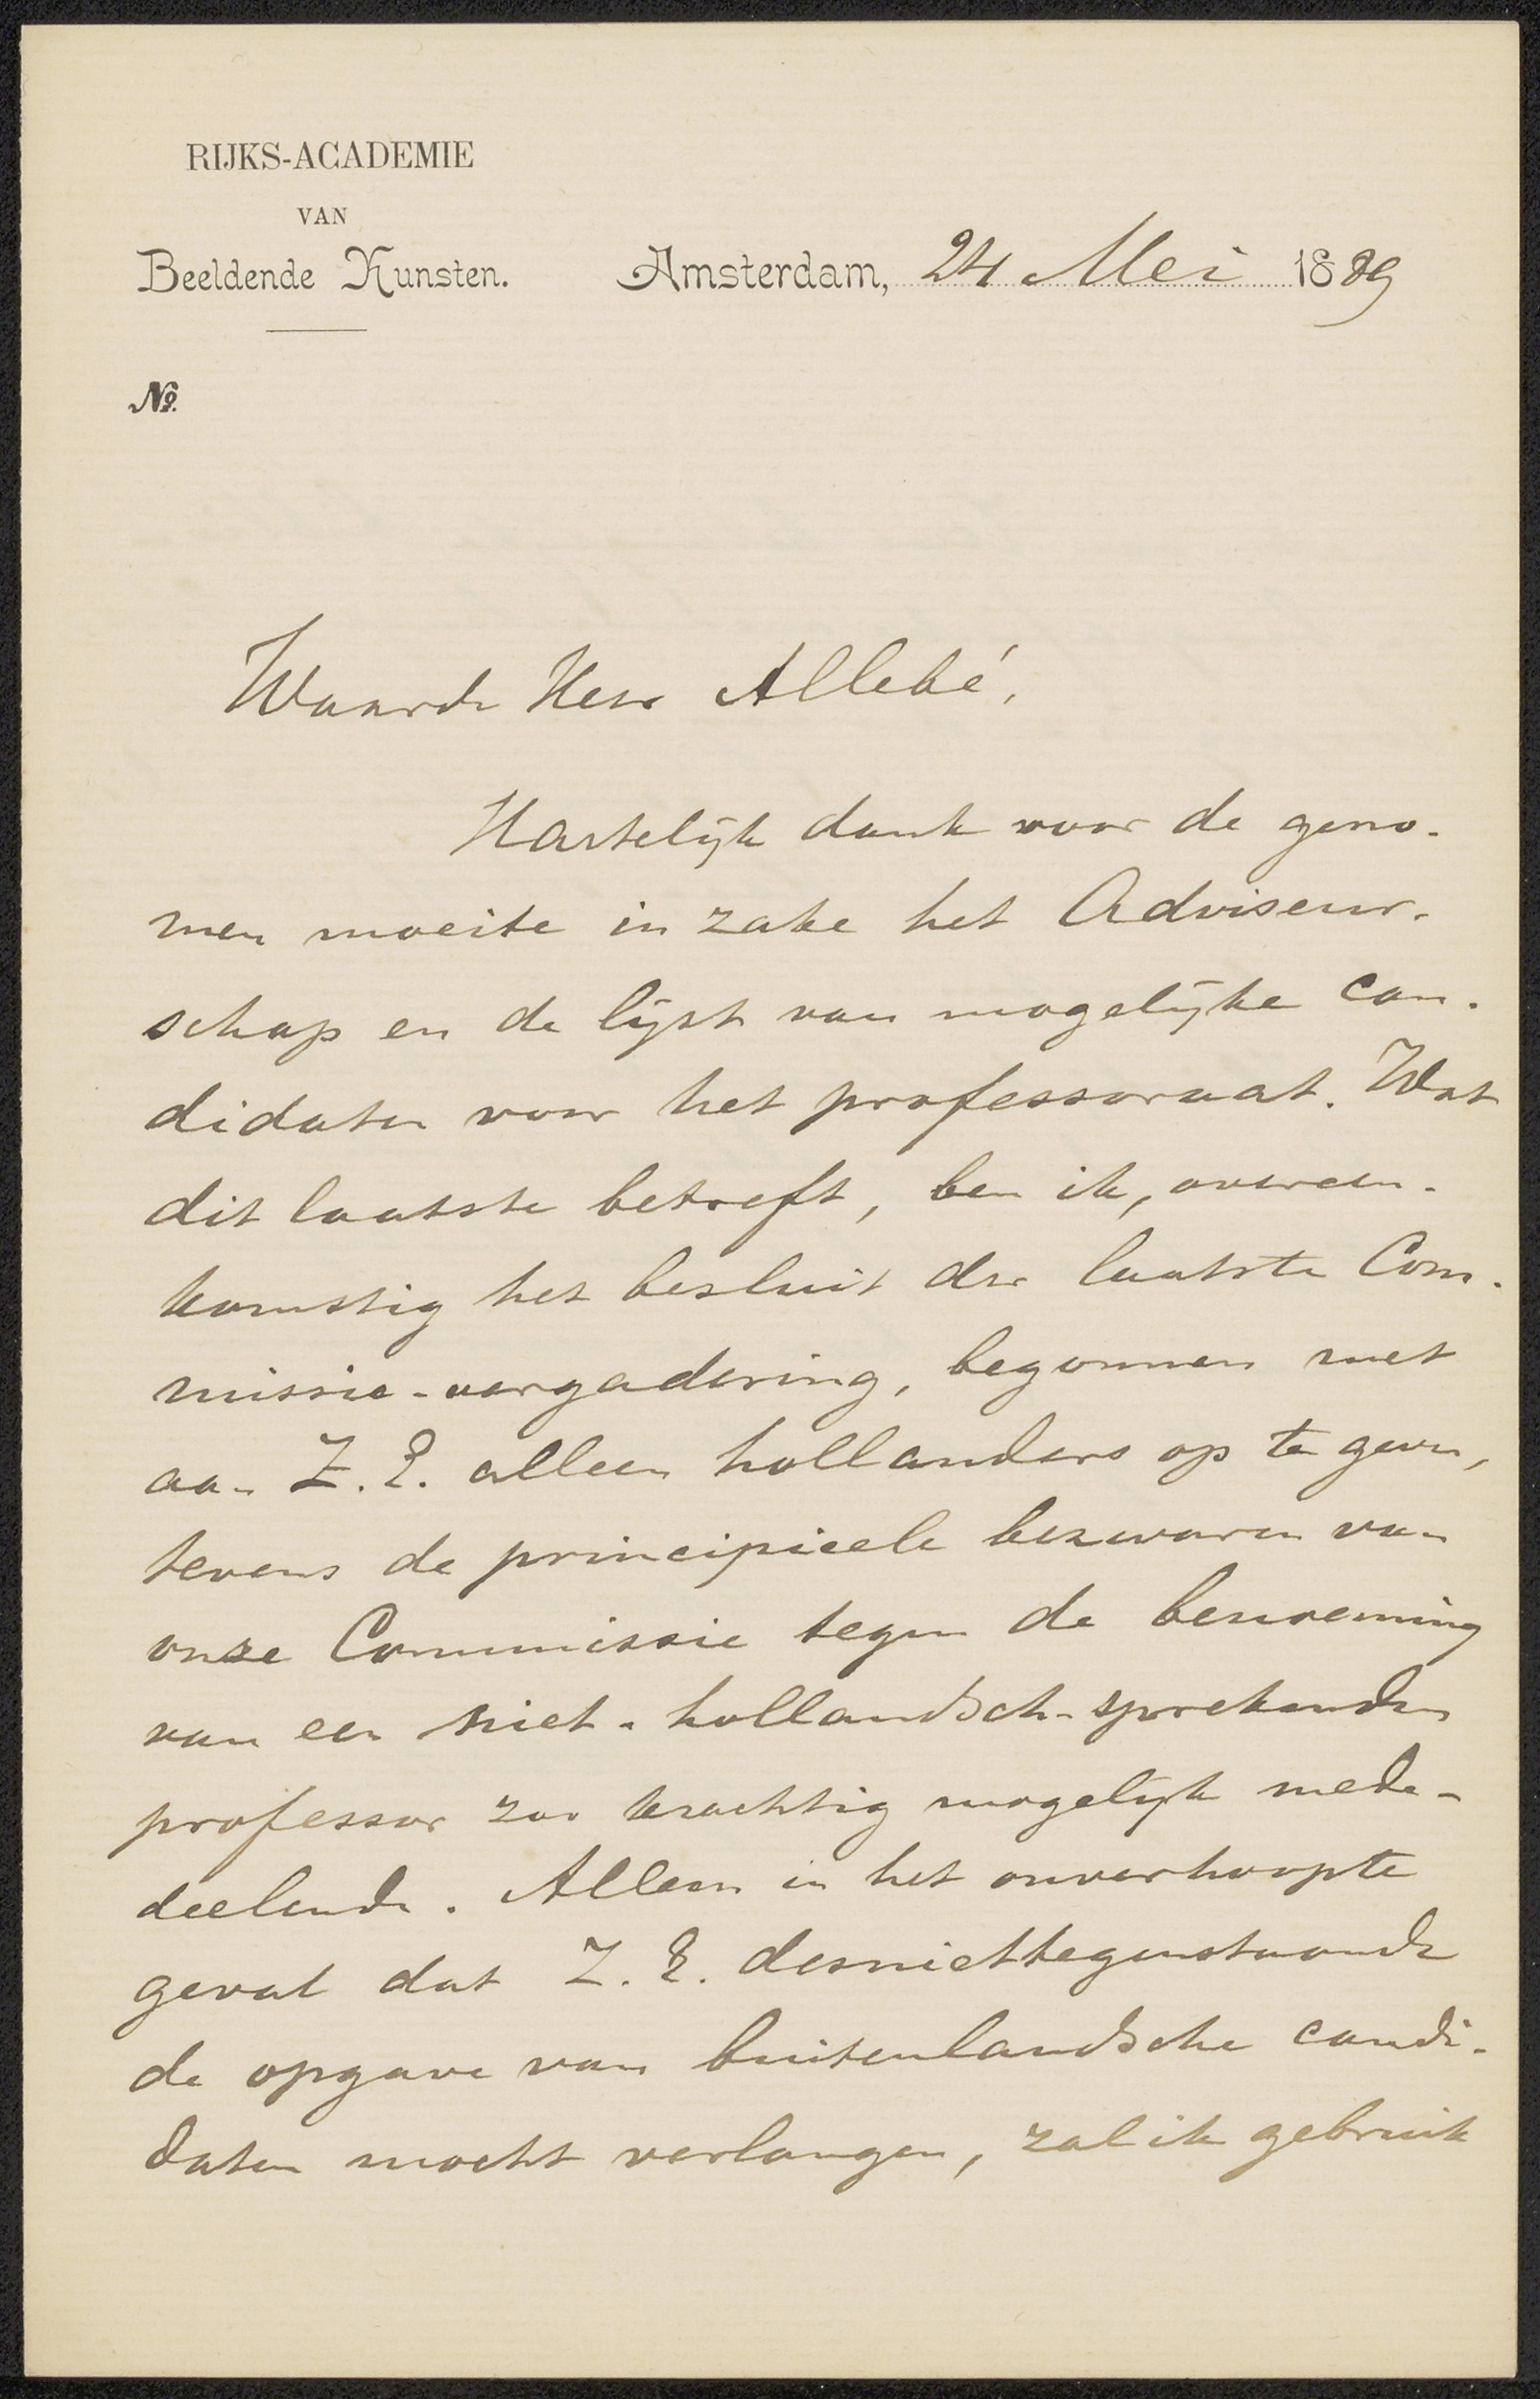 RIJKS-ACADEMIE
VAN
Beeldende Kunsten.
Amsterdam, 24 Mei 1889
No.
Waarde Heer Allebé,
Hartelijk dank voor de geno-
men moeite in zake het Adviseur-
schap en de lijst van mogelijke can-
didaten voor het professoraat. Wat
dit laatste betreft, ben ik, overeen-
komstig het besluit der laatste Com-
missie-vergadering, begonnen met
aan Z.E. alleen hollanders op te geven,
tevens de principieele bezwaren van
onze Commissie tegen de benoeming
van een niet-hollandsch-sprekenden
professor zoo krachtig mogelijk mede-
deelende. Alleen in het onverhoopte
geval dat Z.E. desniettegenstaande
de opgave van buitenlandsche candi-
daten mocht verlangen, zal ik gebruik